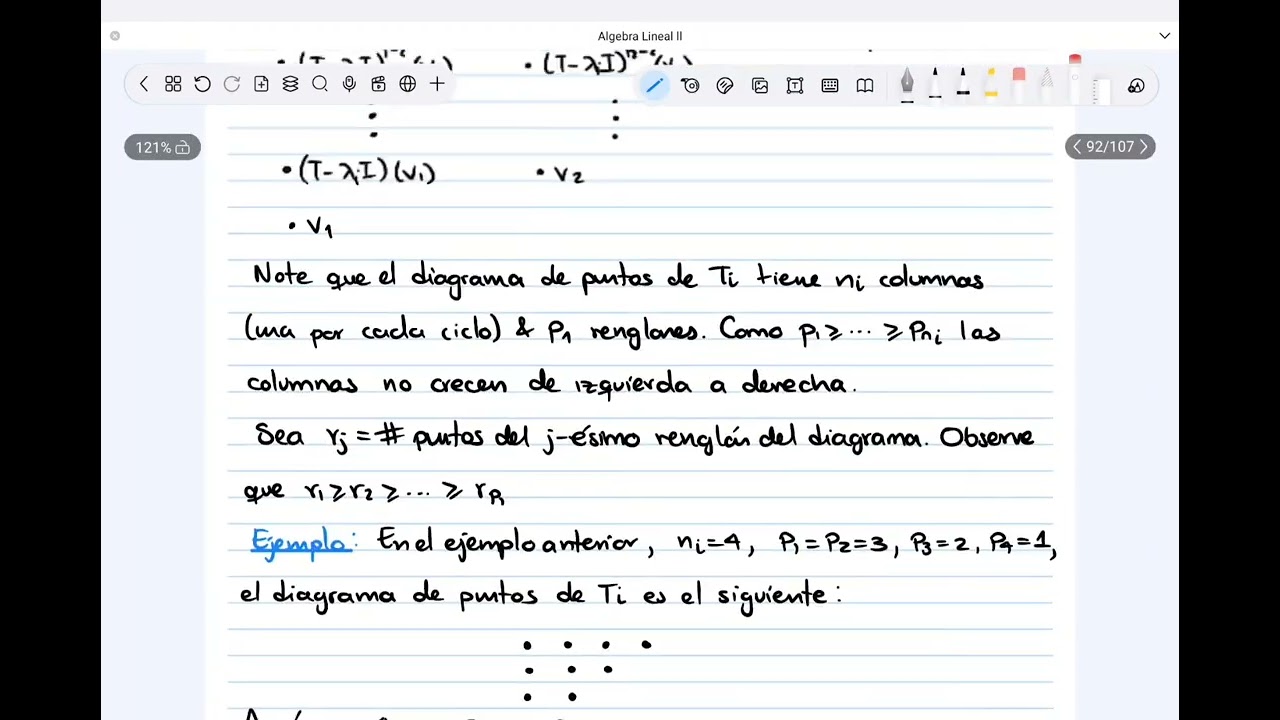 Algebra Lineal II
• (T-λiI)
121%
92/107
• (T-λiI)(v1) • v2
• v1
Note que el diagrama de puntos de Ti tiene ni columnas
(una por cada ciclo) & P1 renglones. Como p1 ≥ ··· ≥ Pni las
columnas no crecen de izquierda a derecha.
Sea rj = # puntos del j-ésimo renglón del diagrama. Observe
que r1 ≥ r2 ≥ ··· ≥ rP1
Ejemplo: En el ejemplo anterior, ni=4, P1=P2=3, P3=2, P4=1,
el diagrama de puntos de Ti es el siguiente: